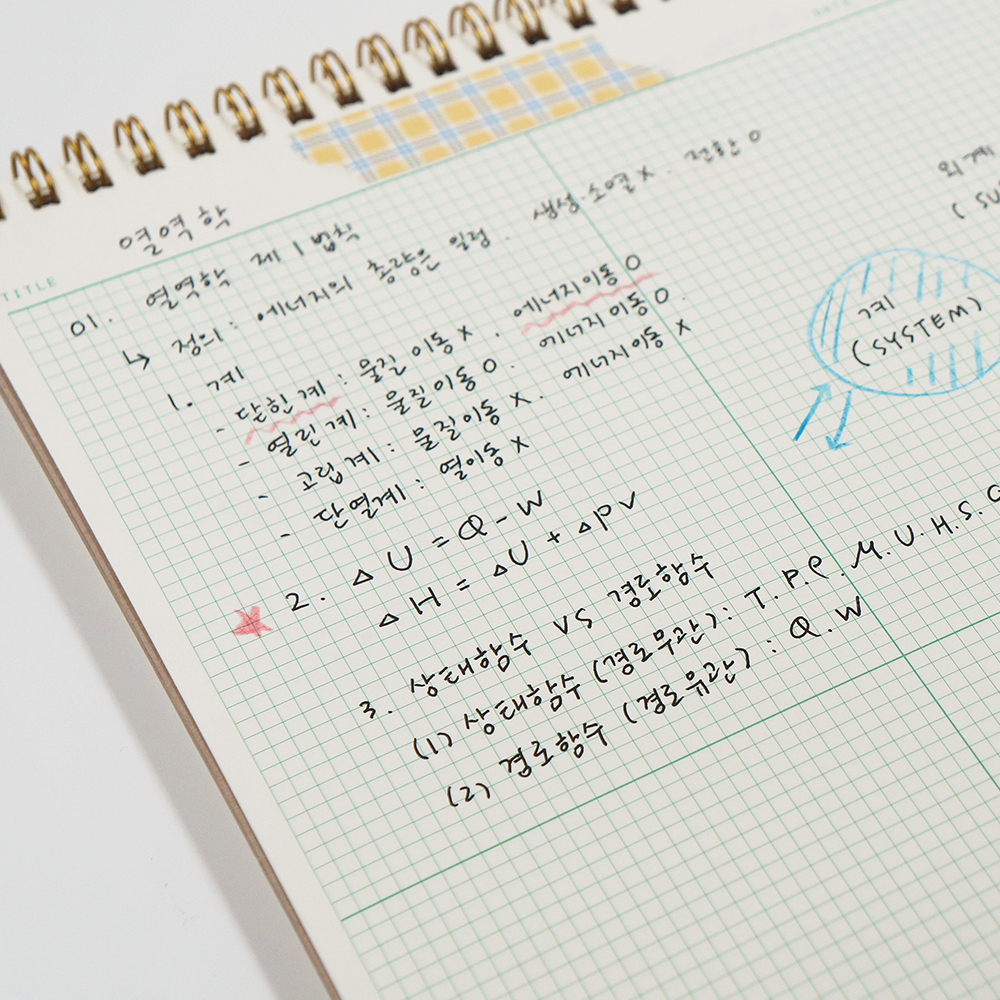 TITLE
열역학
01. 열역학 제 1 법칙
↳ 정의 : 에너지의 총량은 일정. 생성·소멸 X. 전환 O
1. 계
- 닫힌계 : 물질 이동 X. 에너지이동 O
- 열린계 : 물질이동 O. 에너지이동 O.
- 고립계 : 물질이동 X. 에너지이동 X
- 단열계 : 열이동 X
2. △U = Q - W
△H = △U + △PV
3. 상태함수 VS 경로함수
(1) 상태함수 (경로무관) : T. P. ρ. M. U. H. S. G
(2) 경로함수 (경로유관) : Q. W
외계
(SU
계
(SYSTEM)